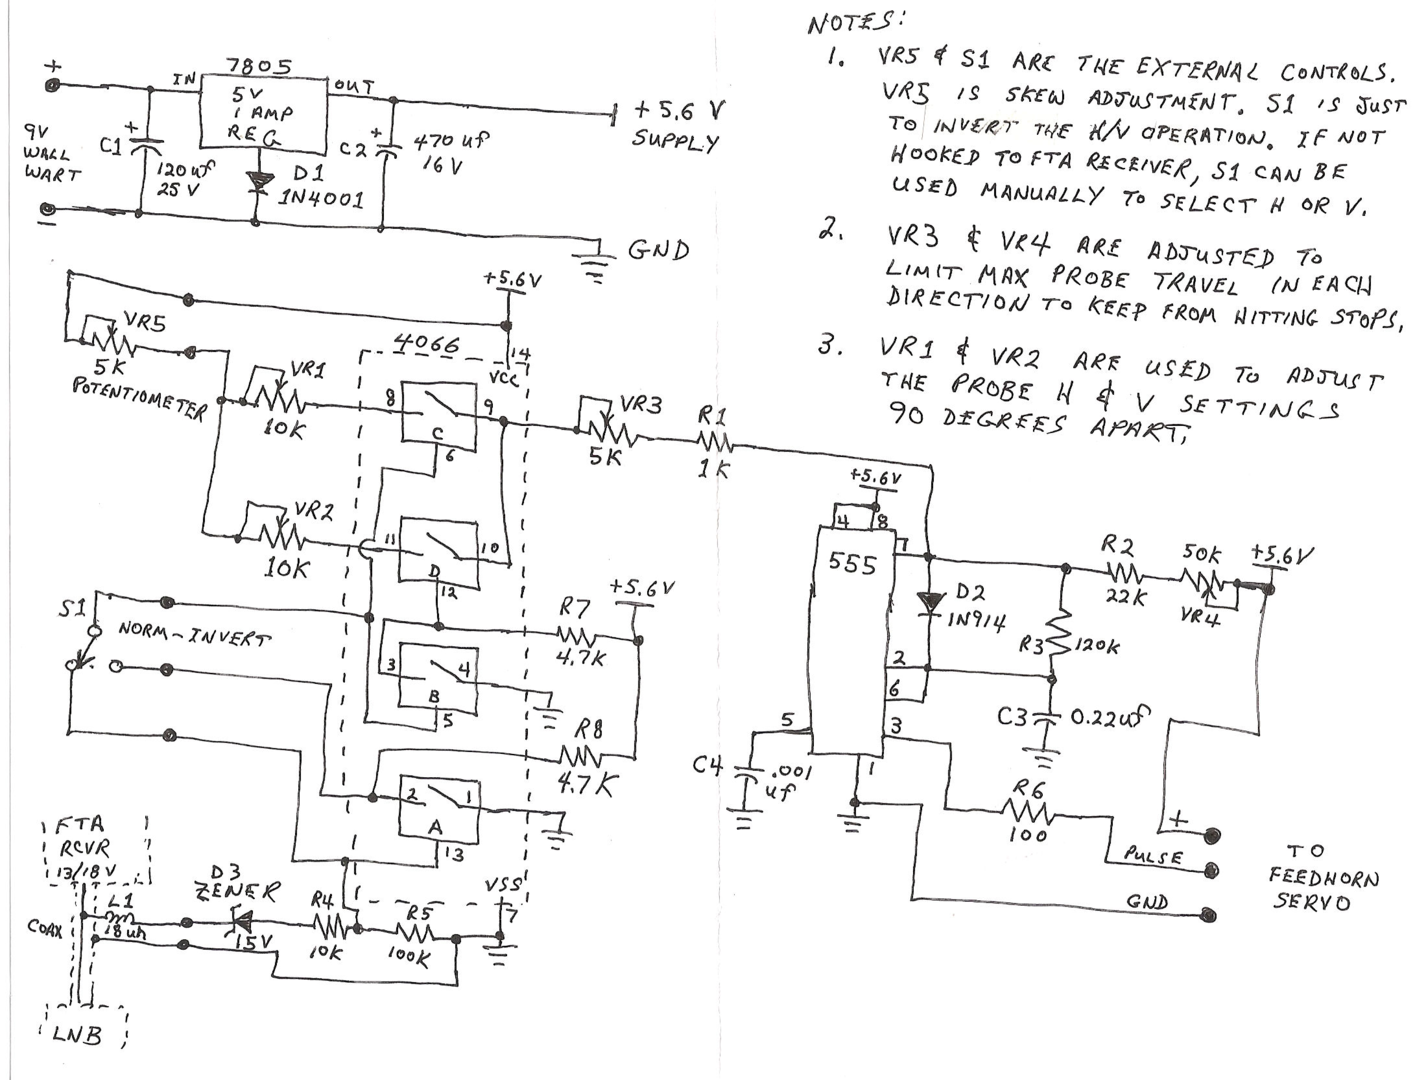 NOTES:
1. VR5 & S1 ARE THE EXTERNAL CONTROLS.
VR5 IS SKEW ADJUSTMENT. S1 IS JUST
TO INVERT THE H/V OPERATION. IF NOT
HOOKED TO FTA RECEIVER, S1 CAN BE
USED MANUALLY TO SELECT H OR V.
2. VR3 & VR4 ARE ADJUSTED TO
LIMIT MAX PROBE TRAVEL IN EACH
DIRECTION TO KEEP FROM HITTING STOPS.
3. VR1 & VR2 ARE USED TO ADJUST
THE PROBE H & V SETTINGS
90 DEGREES APART.
+
9V
WALL
WART
-
+
C1
120uf
25V
IN
7805
OUT
5V
1 AMP
REG
D1
1N4001
+
C2
470 uf
16V
+ 5.6 V
SUPPLY
GND
+5.6V
VR5
5K
POTENTIOMETER
VR1
10K
VR2
10K
4066
14
VCC
8
9
C
6
11
10
D
12
3
4
B
5
2
1
A
13
VSS
7
VR3
5K
R1
1K
S1
NORM-INVERT
R7
4.7K
+5.6V
R8
4.7K
FTA
RCVR
13/18V
L1
18uh
COAX
LNB
D3
ZENER
15V
R4
10K
R5
100K
+5.6V
4
8
7
555
2
6
3
5
1
C4
.001
uf
D2
1N914
R2
22K
50K
VR4
+5.6V
R3
120K
C3
0.22uf
R6
100
+
PULSE
GND
TO
FEEDHORN
SERVO